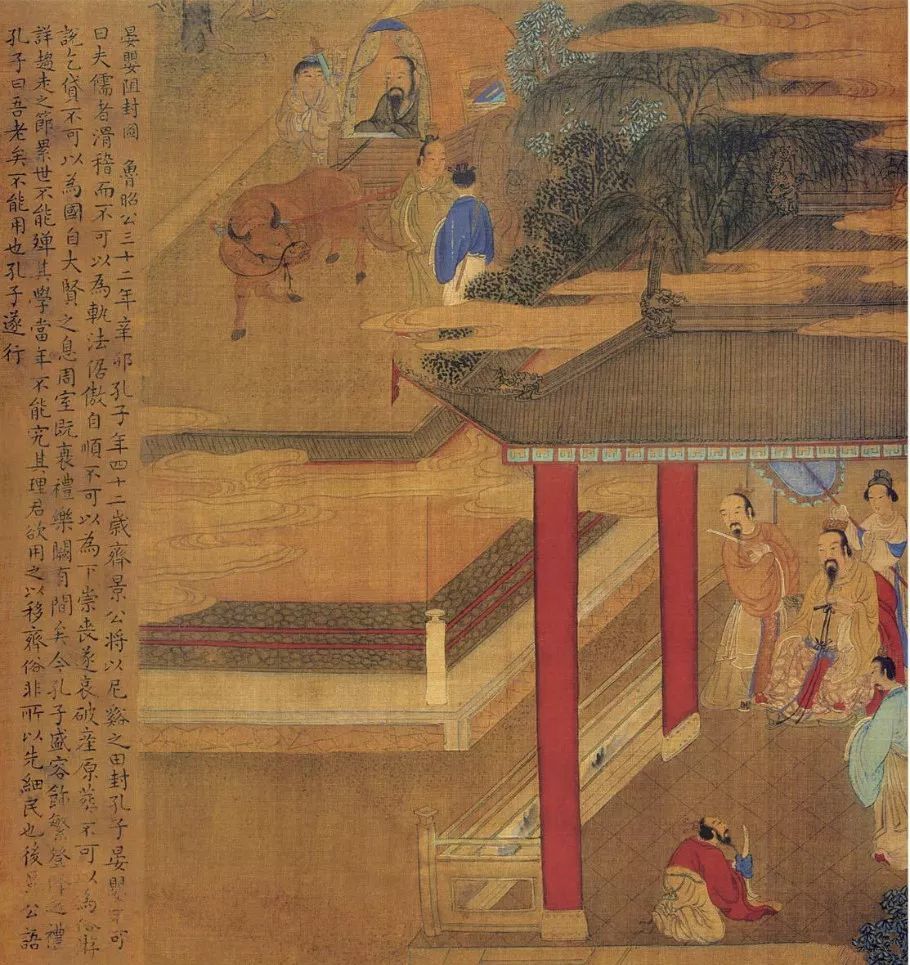 晏嬰阻封圖 魯昭公三十二年辛卯孔子年四十二歲齊景公将以尼谿之田封孔子晏嬰不可
曰夫儒者滑稽而不可以為軌法倨傲自順不可以為下崇喪遂哀破産厚葬不可以為俗游
說乞貸不可以為國自大賢之息周室既衰禮樂闕有間矣今孔子盛容飾繁登降之禮
詳趨走之節累世不能殫其學當年不能究其理君欲用之以移齊俗非所以先細民也後景公語
孔子曰吾老矣不能用也孔子遂行